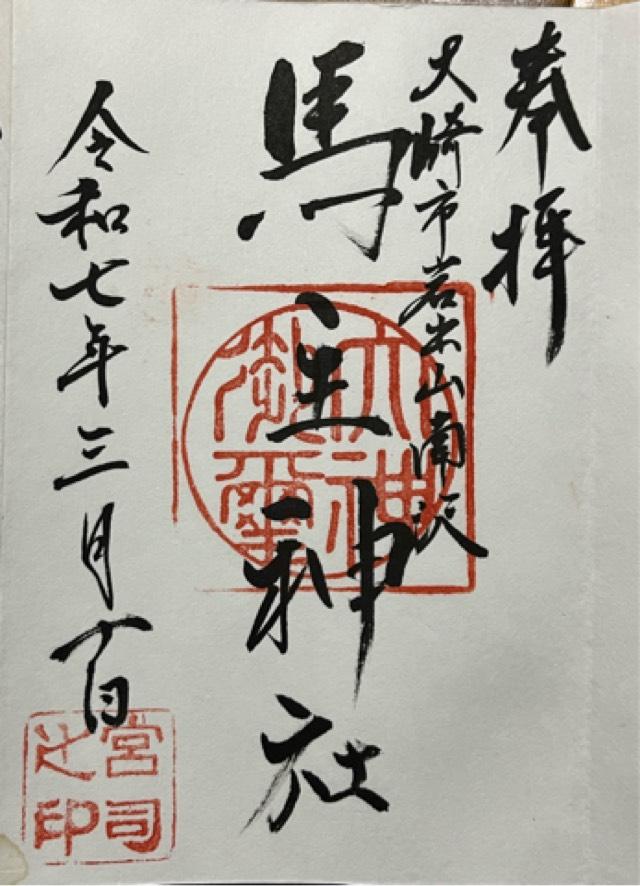 奉拝
大崎市岩出山南沢
馬主神社
令和七年三月 日
大神
御璽
宮司
之印